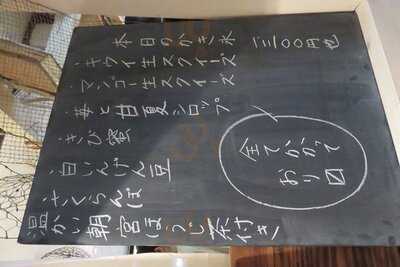 本日のかき氷 一三〇〇円也
・キウイ生スクイーズ
・マンゴー生スクイーズ
・苺と甘夏シロップ
・きび蜜
・白いんげん豆
・さくらんぼ
全てかかって
おり〼
温かい朝宮ほうじ茶付き